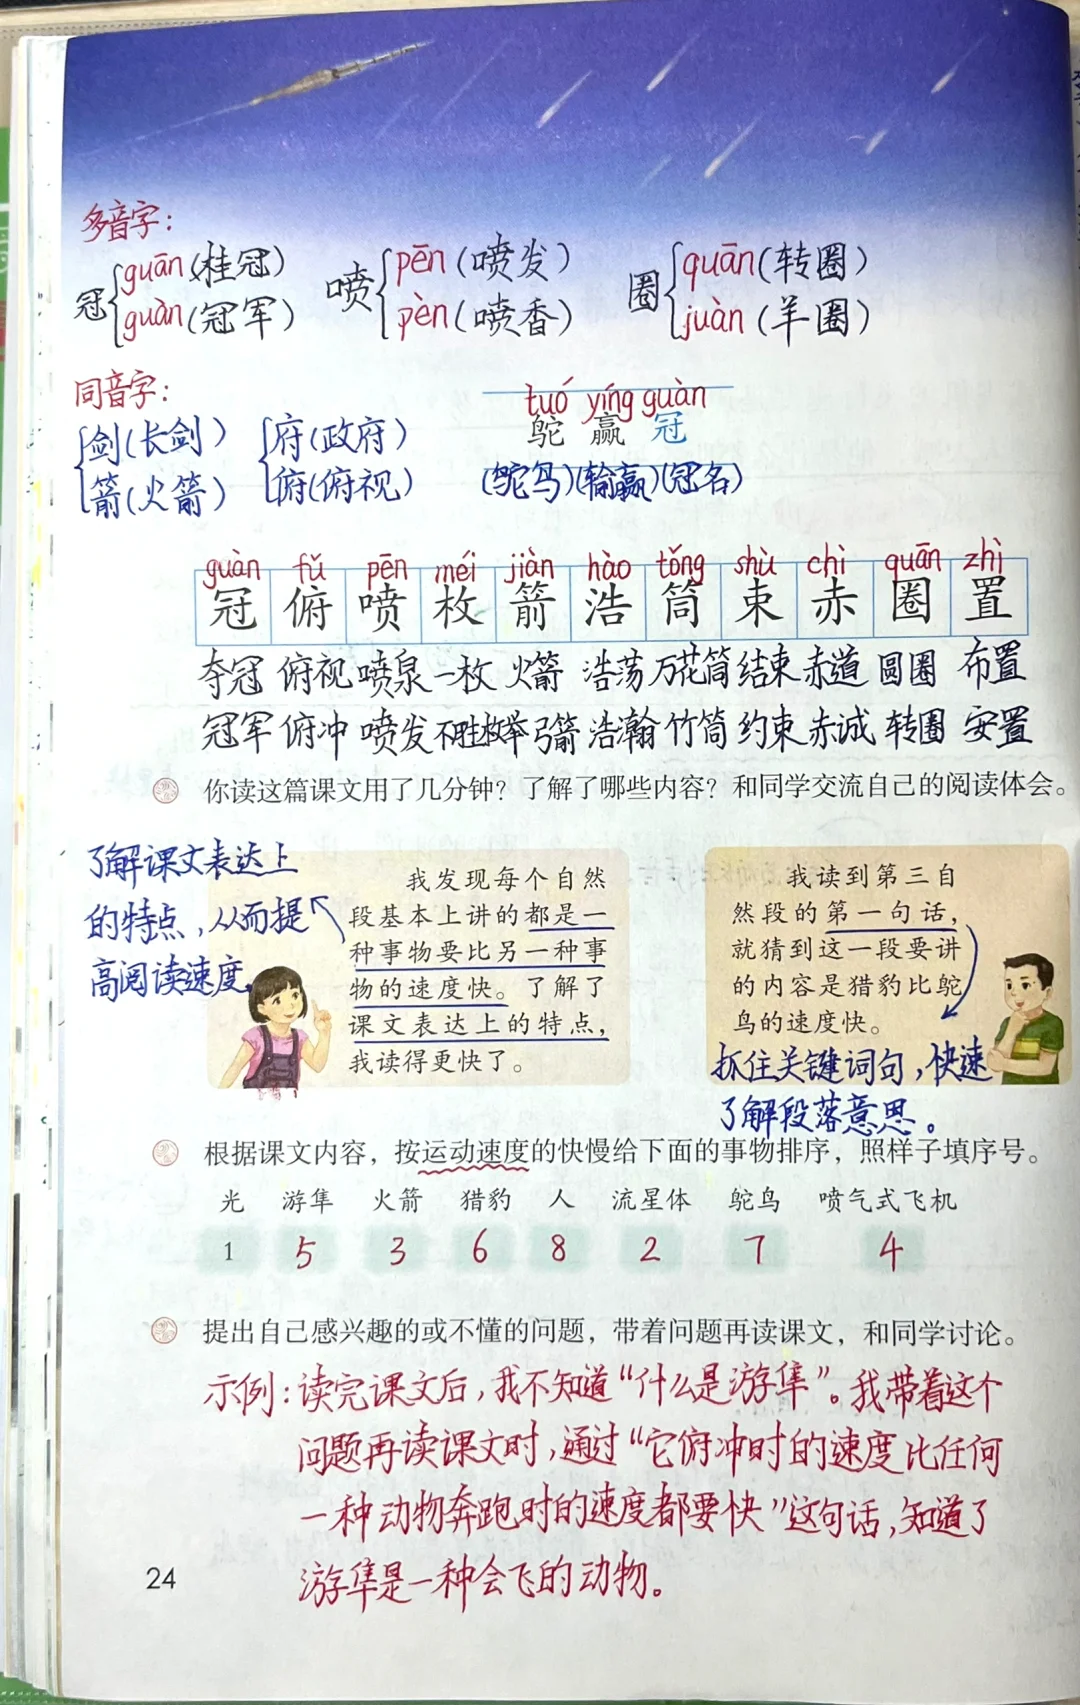 多音字：
冠{guān(桂冠) 喷{pēn(喷发) 圈{quān(转圈)
guàn(冠军) pèn(喷香) juàn(羊圈)
同音字：
tuó yíng guàn
鸵 赢 冠
{剑(长剑) {府(政府)
箭(火箭) 俯(俯视) (鸵鸟)(输赢)(冠名)
guàn fǔ pēn méi jiàn hào tǒng shù chì quān zhì
冠 俯 喷 枚 箭 浩 筒 束 赤 圈 置
夺冠 俯视 喷泉 一枚 火箭 浩荡 万花筒 结束 赤道 圆圈 布置
冠军 俯冲 喷发 不胜枚举 弓箭 浩瀚 竹筒 约束 赤诚 转圈 安置
你读这篇课文用了几分钟？了解了哪些内容？和同学交流自己的阅读体会。
了解课文表达上
的特点，从而提
高阅读速度。
我发现每个自然
段基本上讲的都是一
种事物要比另一种事
物的速度快。了解了
课文表达上的特点，
我读得更快了。
我读到第三自
然段的第一句话，
就猜到这一段要讲
的内容是猎豹比鸵
鸟的速度快。
抓住关键词句，快速
了解段落意思。
根据课文内容，按运动速度的快慢给下面的事物排序，照样子填序号。
光 游隼 火箭 猎豹 人 流星体 鸵鸟 喷气式飞机
1 5 3 6 8 2 7 4
提出自己感兴趣的或不懂的问题，带着问题再读课文，和同学讨论。
示例：读完课文后，我不知道“什么是游隼”。我带着这个
问题再读课文时，通过“它俯冲时的速度比任何
一种动物奔跑时的速度都要快”这句话，知道了
游隼是一种会飞的动物。
24